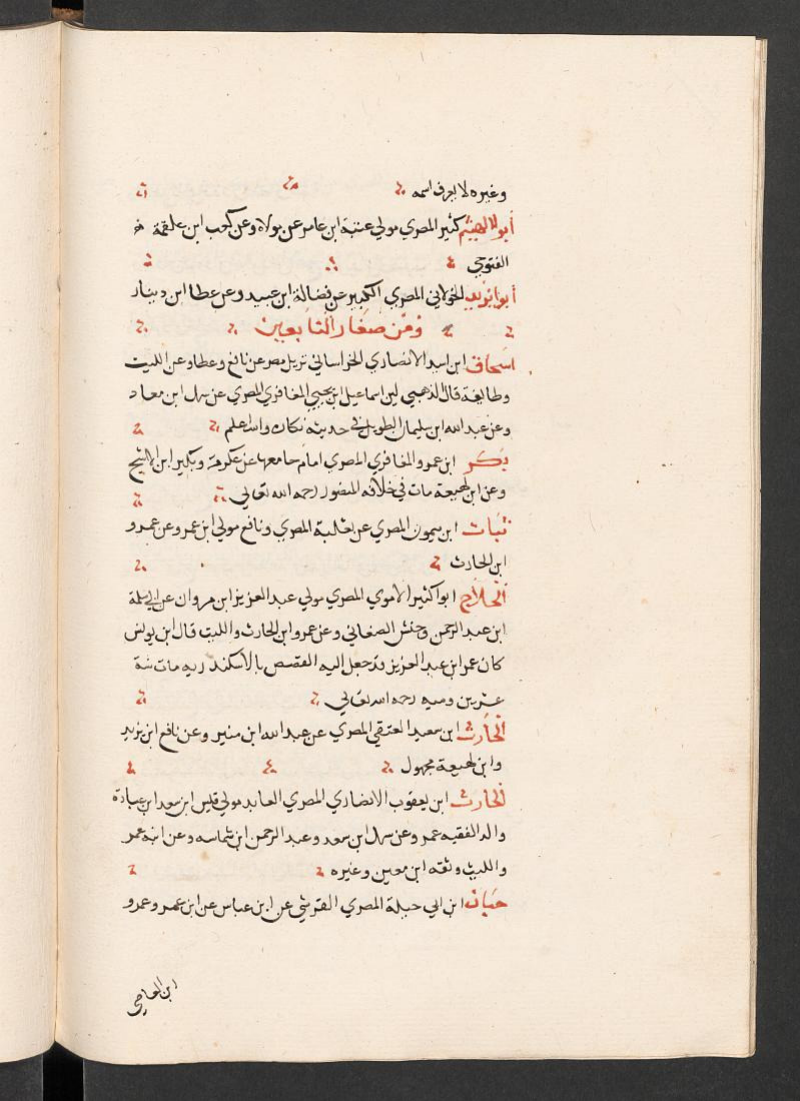 وغيره لا يعرف اسمه
أبو الهيثم كثير المصري مولي عتبة ابن عامر عن مولاه وعن كعب ابن علقمة
أبوا يزيد الخولاني المصري الكبير عن فضالة ابن عبيد وعن عطا ابن دينار
ومن صغار التابعين
اسحاق ابن اسيد الانصاري الخراساني نزيل مصر عن نافع وعطا وعن الليت
وطايفة قال الذهبي لين اسماعيل ابن يحيي المعافري المصري عن سهل ابن معاد
وعن عبد الله ابن سليمان الطويل في حديثه نكاره والله اعلم
بكر ابن عمرو المعافري المصري امام جامعها عن عكرمة وبكير ابن الاشج
وعن ابن لهيعة مات في خلافه المنصور رحمه الله تعالي
ثبات ابن ميمون المصري عن ثعلبة المصري ونافع مولي ابن عمر وعن عمرو
ابن الحارث
الجلاج ابوا كثير الاموي المصري مولي عبد العزيز ابن مروان عن ابي سلمة
ابن عبد الرحمن وحنش الصنعاني وعن عمرو ابن الحارث والليت قال ابن يونس
كان عمر ابن عبد العزيز قد جعل اليه القصص بالاسكندريه مات سنة
عشرين وميه رحمه الله تعالي
الحارث ابن سعيد العتقي المصري عن عبد الله ابن منير وعن نافع ابن يزيد
وابن لهيعة مجهول
الحارث ابن يعقوب الانصاري المصري العابد مولي قيس ابن سعد ابن عبادة
والد الفقيه عمرو عن سهل ابن سعد وعبد الرحمن ابن شماسه وعن ابنه عمر
والليث وثقه ابن معين وغيره
حبان ابن ابي حبلة المصري القرشي عن ابن عباس عن ابن عمر وعمرو
ابن العاصي